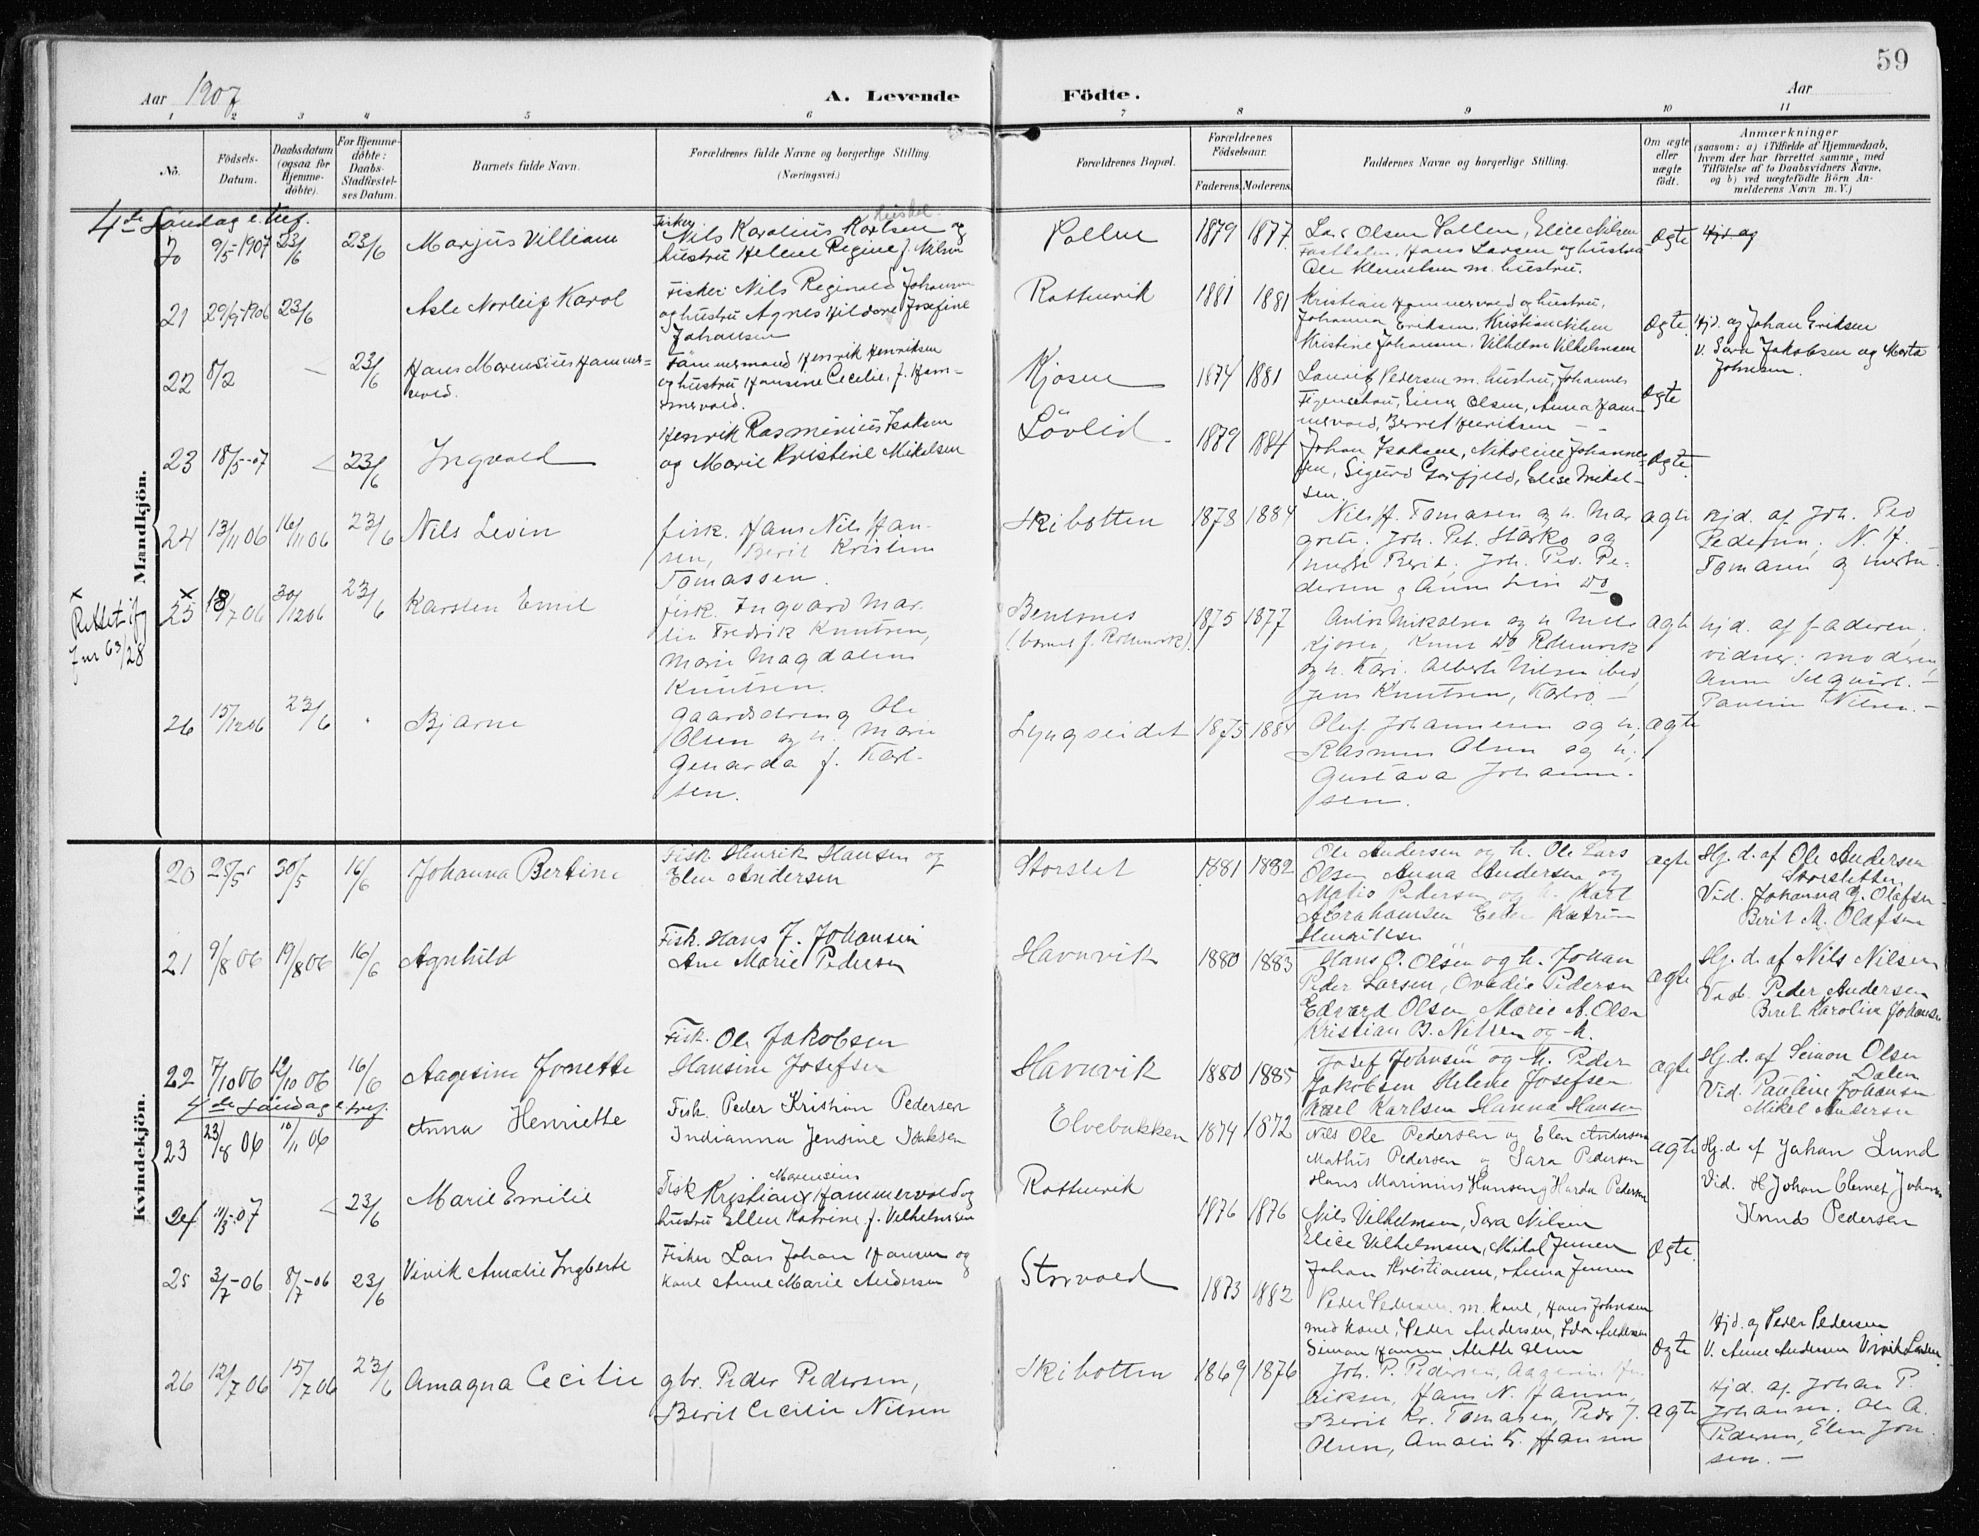 59
Aar 1907
A. Levende Födte.
Aar
1 2 3 4 5 6 7 8 9 10 11
No.
Födsels-Datum.
Daabsdatum (ogsaa for Hjemmedöbte).
For Hjemmedöbte: Daabs-Stadfæstelses Datum.
Barnets fulde Navn.
Forældrenes fulde Navne og borgerlige Stilling.
(Næringsvei.)
Forældrenes Bopæl.
Forældrenes Födselsaar.
Faderens. Moderens.
Faddernes Navne og borgerlige Stilling.
Om ægte eller uægte födt.
Anmærkninger
(saasom: a) i Tilfælde af Hjemmedaab,
hvem der har forrettet samme, med
Tilföielse af to Daabsvidners Navne,
og b) ved uægtefödte Börn An-
melderens Navn m. V.)
Mandkjön.
4de Söndag e. Tref.
20 9/5-1907 23/6 23/6 Marjus Villiam
Fisker
Nils Karolius Karlsen og
hustru Helene Regine f. Nilsen
Pollen 1879 1877
Lars Olsen Pollen, Elice Nilsen
Hans Larsen og hustru
Ole Klemetsen m. hustru.
Ægte Hjd. af
21 29/9-1906 23/6 Asle Norleif Karol
Fisker Nils Reginald Johansen
og hustru Agnes Hildore Josefine
Johansen
Rottenvik 1881 1881
Kristian Hammervold og hustru,
Johanna Eriksen, Kristian Nilsen
Kristine Johansen, Vilhelm Vilhelmsen
Ægte. Hjd. af Johan Eriksen
v. Sara Jakobsen og Marta
Johnsen.
22 8/2 — 23/6 Hans Marensius Hammer-
vold.
Tömmermand Henrik Henriksen
og hustru Hansine Cecilie, f. Ham-
mervold.
Kjosen 1874 1881
Laurits Pedersen m. hustru, Johannes
Einar Olsen, Anna Ham-
mervold, Berret Henriksen
Ægte
23 18/5-07 23/6 Ingvald
Henrik Rasminius Isaksen
og Marie Kristine Mikelsen
Lövlid 1879 1884
Johan Isaksen, Nikoline Johanne-
sen, Sigurd Storfjeld, Elise Mikel-
sen.
Ægte.
24 13/11 06 16/11 06 23/6 Nils Levin
fisk. Hans Nils Han-
sen, Berit Kristine
Tomassen.
Skibotten 1878 1884
Nils H. Tomasen og h. Mar
grete. Joh. Pet. Starko og
hustr. Berit, Joh. Ped. Pe-
dersen, Anne Do
ægte Hjd. af Joh. Ped
Pedersen, N. H.
Tomasen og hustru.
x Rettet
Jnr 63/28
x 25 18/7 06 30/12 06 23/6 Karsten Emil
fisk. Ingvard Mar-
lin Fredrik Knutsen,
Marie Magdalene
Knutsen.
Bensnes
(barnet f. Rottenvik) 1875 1877
Mikalsen og h. Nille
Kjosen, Knut Do Rottenvik
og h. Kari. Albert Nilsen
Jens Knutsen, Karlsö —
ægte Hjd. af faderen,
vidner: moderen,
Anne —
Pauline Nilsen. —
26 15/12 06 23/6 Bjarne
gaardsdreng Ole
Olsen og h. Marie
Genarda f. Karl-
sen.
Lyngseidet 1875 1884
Oluf Johannesen og h.,
Rasmus Olsen og h.,
Gustava Johanne-
sen.
ægte
Kvindekjön.
20 25/5 30/5 16/6 Johanna Bertine
Fisk. Henrik Hansen og
Elen Andersen
Storslet 1881 1882
Ole Andersen og h. Ole Lars
Olsen Anna Andersen og
Matis Pedersen og h. Karl
Abrahamsen Ellen Katrine
Henriksen
ægte Hj. d. af Ole Andersen
Storsletten
Vid. Johanna G. Olafsen
Berit M. Olafsen
21 9/8 06 19/8 06 16/6 Agnhild
Fisk. Hans J. Johansen
Ane Marie Pedersen
Havnvik 1880 1883
Hans O. Olsen og h. Johan
Peder Larsen, Ovedie Pedersen
Edvard Olsen Marie A. Olsen
Kristian B. Nilsen og h.
ægte Hj. d. af Nils Nilsen
Vid. Peder Andersen
Beret Karoline Johansen
22 7/10 06 12/10 06 16/6 Aagesine Jonette
Fisk. Ole Jakobsen
Hansine Josefsen
Havnvik 1880 1885
Josef Johnsen og h. Peder
Jakobsen Helene Josefsen
Karl Karlsen Hanna Hansen
ægte Hj. d. af Simon Olsen
Dalen
Vid. Pauline Johansen
Mikel Andersen
4de Söndag e. tref.
23 23/8 06 10/11 06 Anna Henriette
Fisk. Peder Kristian Pedersen
Indianna Jensine Isaksen
Elvebakken 1874 1872
Nils Ole Pedersen og Elen Andersen
Mathis Pedersen og Sara Pedersen
Hans Marinius Hansen, Harda Pedersen
ægte Hj. d. af Johan Lund
Vid. H Johan Clemet Johans
Knud Pedersen
24 11/3-07 23/6 Marie Emilie
Fisk Kristian Marensius Hammervold og
hustru Ellen Katrine f. Vilhelmsen
Rottenvik 1876 1876
Nils Vilhelmsen, Sara Nilsen
Elice Vilhelmsen, Mikal Jensen
Johan Kristiansen, Anna Jensen
Ægte.
25 3/7-06 8/7-06 23/6 Vivik Amalie Ingberte
Fisker Lars Johan Hansen og
kone Anne Marie Andersen
Storvold 1873 1882
Peder Pedersen m. kone, Hans Johnsen
med kone, Peder Andersen, Ida Andersen
Simon Hansen Alette Olsen
Ægte Hjd. af Peder Pedersen
V. Anne Andersen Vivik Larsen
26 12/7 06 15/7 06 23/6 Amagna Cecilie
gbr. Peder Pedersen,
Berit Cecilie Nilsen
Skibotten 1869 1876
Joh. P. Pedersen, Aagesine Hen
riksen, Hans N. Hansen,
Berit Kr. Tomasen, Peder J.
Olsen, Hansen
ægte Hjd. af Johan P.
Johansen. Ole A.
Pedersen, Elen Jon-
sen. —